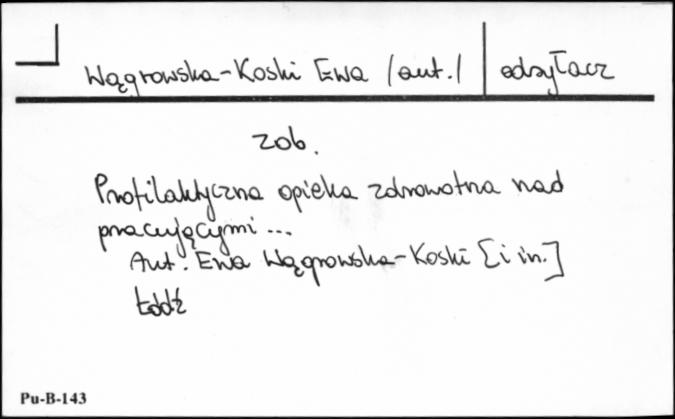 Wągrowska-Koski Ewa /aut./ odsyłacz
zob.
Profilaktyczna opieka zdrowotna nad
pracującymi ...
Aut. Ewa Wągrowska-Koski [i in.]
Łódź
Pu-B-143